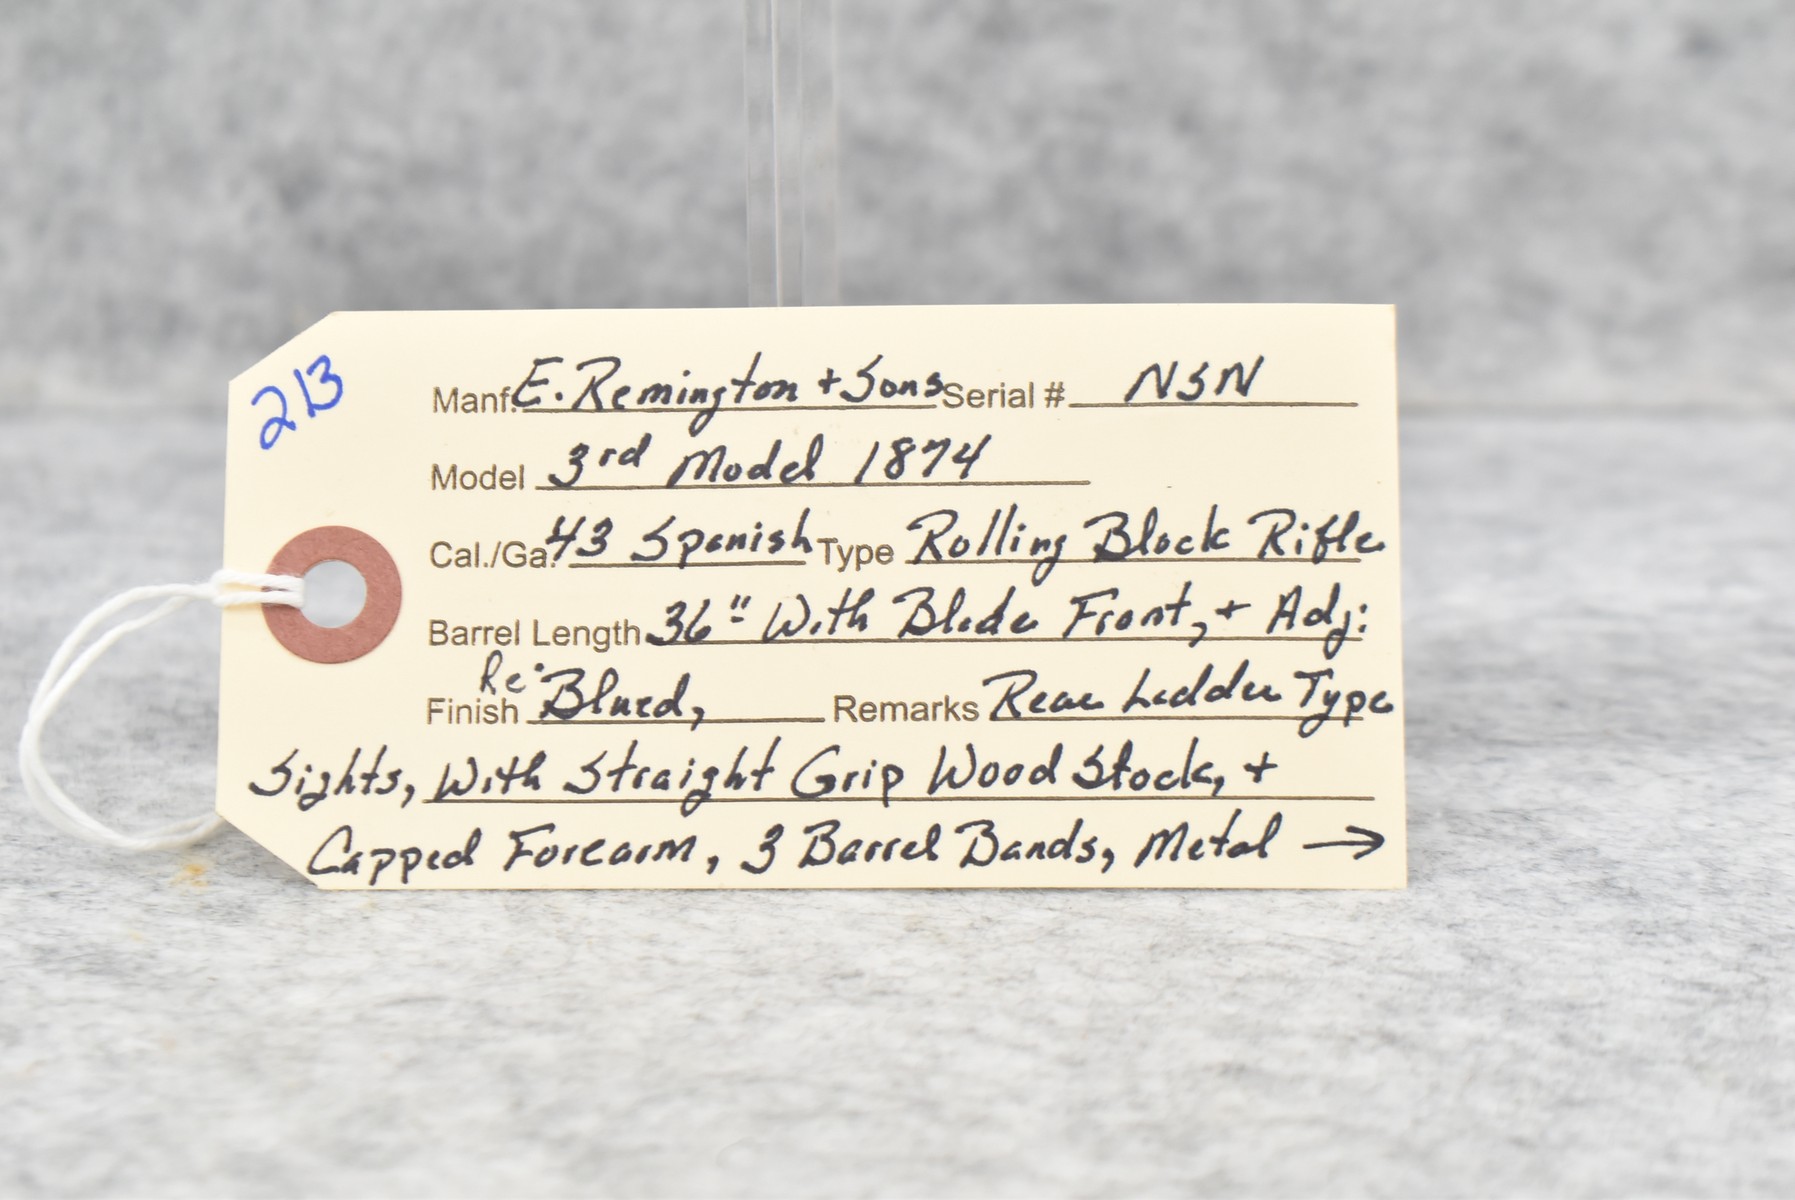 213
Manf. E. Remington + Sons Serial # NSN
Model 3rd Model 1874
Cal./Ga. 43 Spanish Type Rolling Block Rifle
Barrel Length 36" With Blade Front, + Adj:
Finish Re-Blued, Remarks Rear Ladder Type
Sights, With Straight Grip Wood Stock, +
Capped Forearm, 3 Barrel Bands, Metal →